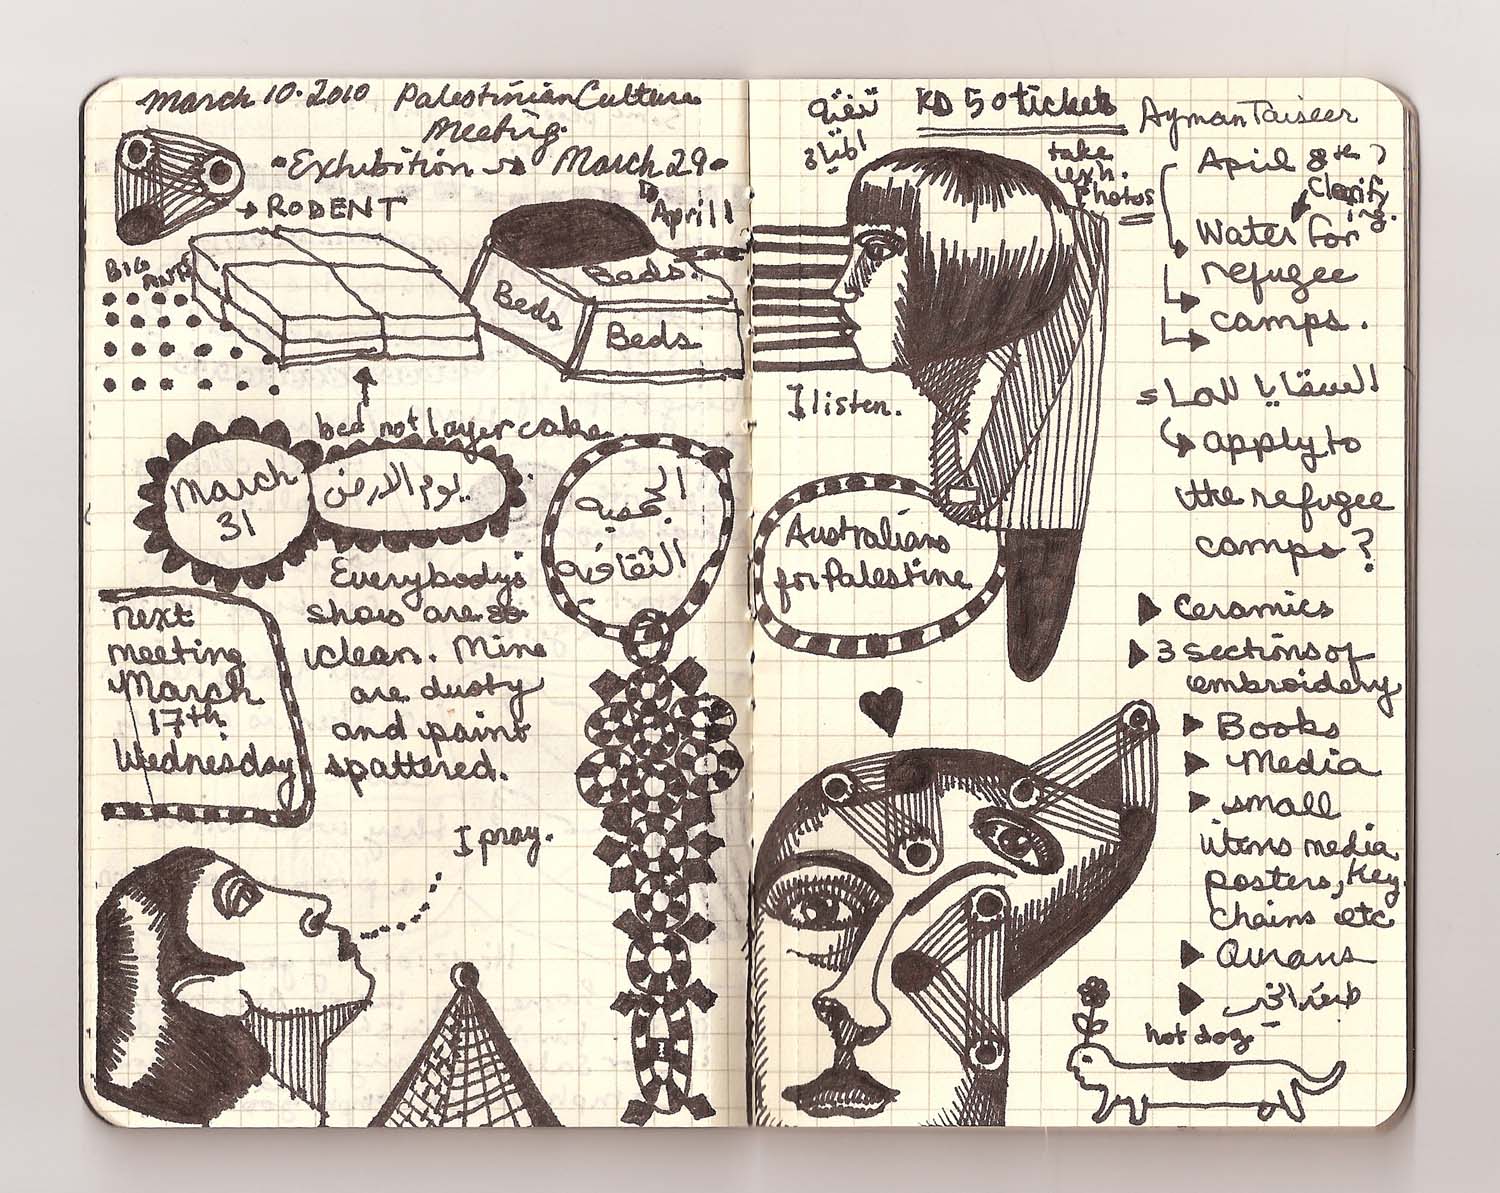 March 10.2010 Palestinian Culture
Meeting.
Exhibition → March 29
April 1
→ RODENT
BIG
ANTS
Beds
Beds
Beds
bed not layer cake
March
31
يوم الارض
الجمعية
الثقافية
Everybody's
shoes are so
clean. Mine
are dusty
and paint
spattered.
next
meeting
March
17th
Wednesday
I pray.
KD 5 a ticket
take
exh.
Photos
I listen.
Australians
for Palestine
Ayman Taiseer
April 8th?
Clarifying.
Water for
refugee
camps.
apply to
the refugee
camps?
Ceramics
3 sections of
embroidery
Books
Media
small
items media
posters, key
chains etc
Qurans
hot dog